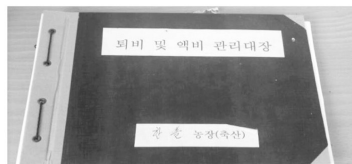 퇴비 및 액비 관리대장
농장(축산)